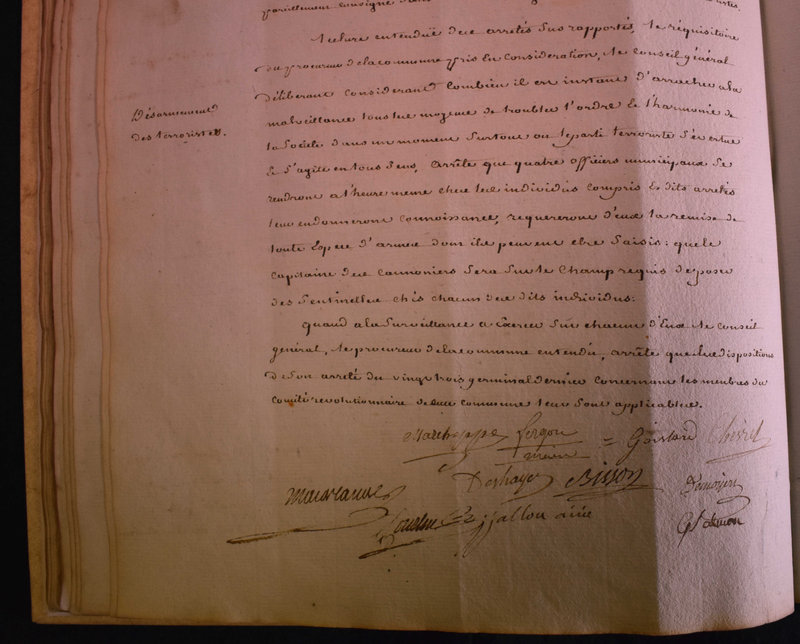 pareillement consigné
Lecture entenduë des arrêtés sus rapportés, le réquisitoire
du procureur de la commune pris en Considération, le Conseil général
délibérant considerant Combien il est instant d'arracher a la
malveillance tous les moyens de troubler l'ordre & l'harmonie de
la Société dans un moment Surtout ou le parti terroriste S'évertue
& S'agite en tous Sens, arrête que quatre officiers municipaux Se
rendront a l'heure même chez les individus compris es dits arrêtés
leur en donneront connoissance, requereront d'eux la remise de
toute Espece d'armes dont ils peuvent etre Saisis: que le
Capitaine des Cannoniers Sera Sur le Champ requis de poser
des Sentinelles chés chacun des dits individus.
Désarmement
des terroristes.
Quand a la Surveillance a Exercer Sur chacun d'Eux le Conseil
général, le procureur de la commune entendu, arrête que les dispositions
de Son arrêté du vingt trois germinal dernier concernant les membres du
Comité révolutionnaire de cette Commune leur Sont applicables.
maire
Deshayes Bisson
jallou ainé